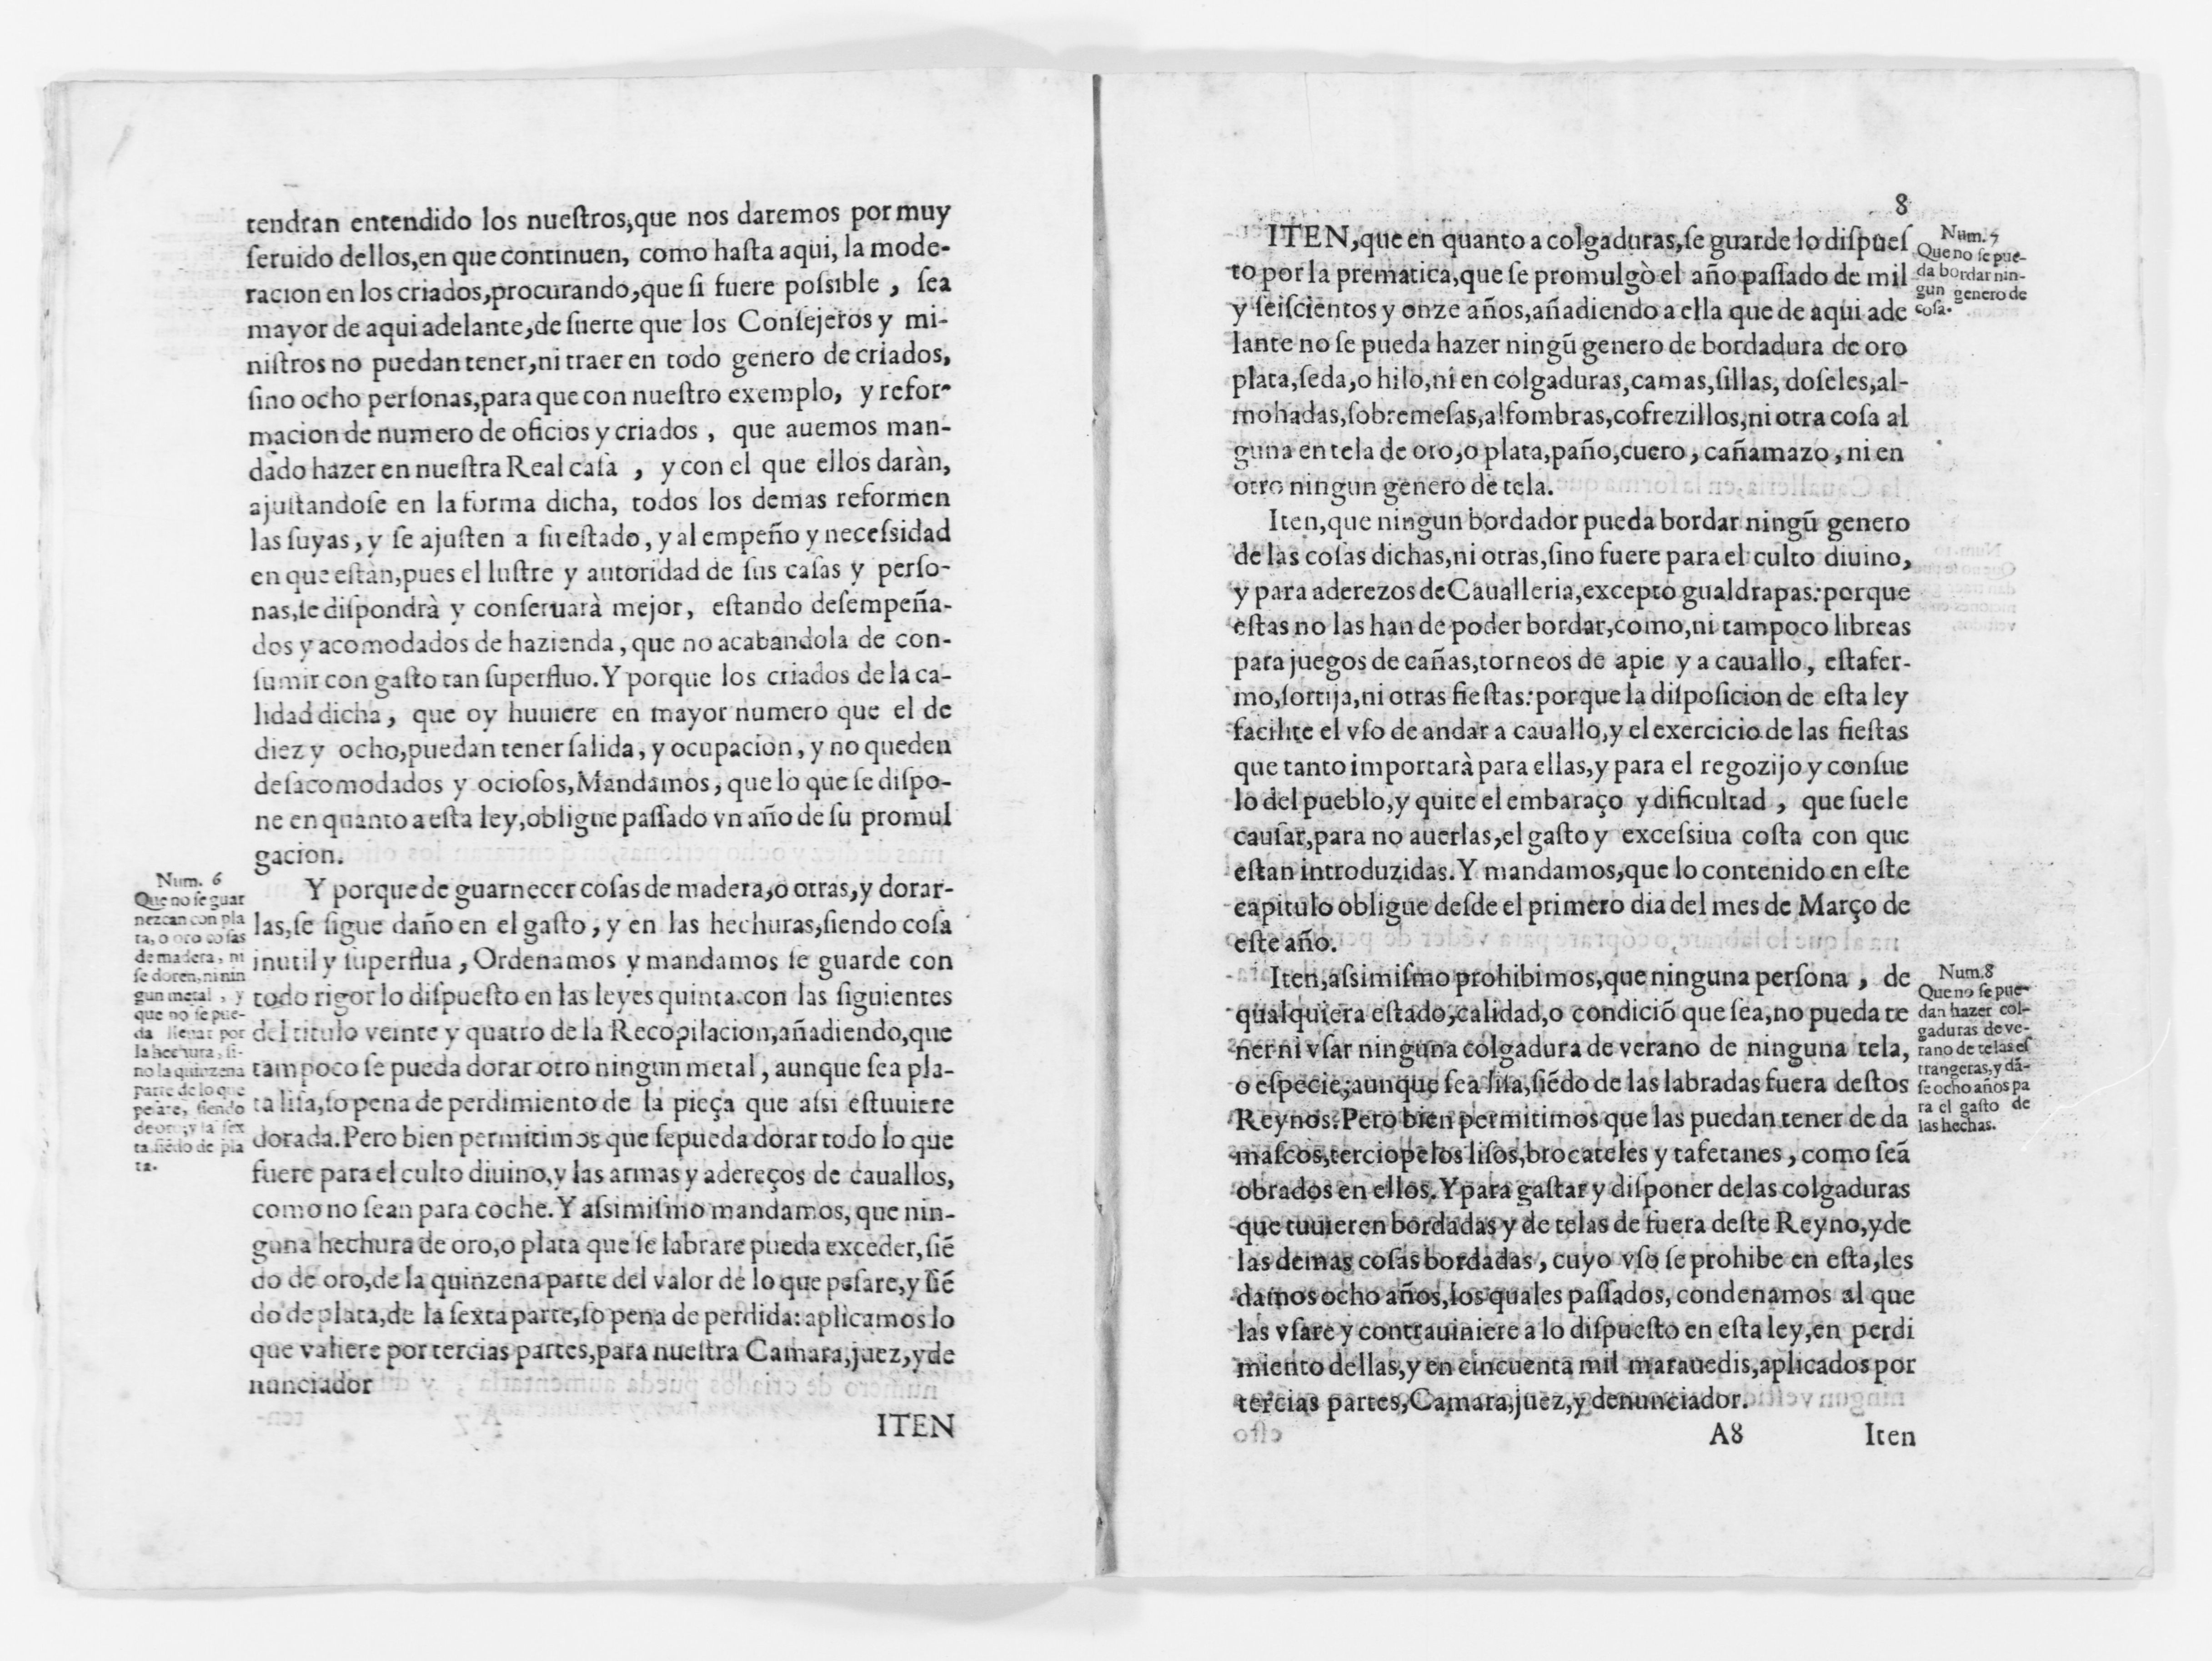 tendran entendido los nueſtros,que nos daremos por muy
ſeruido dellos,en que continuen, como haſta aqui, la mode-
racion en los criados,procurando,que ſi fuere poſsible , ſea
mayor de aqui adelante,de ſuerte que los Conſejeros y mi-
niſtros no puedan tener,ni traer en todo genero de criados,
ſino ocho perſonas,para que con nueſtro exemplo, y refor-
macion de numero de oficios y criados , que auemos man-
dado hazer en nueſtra Real caſa , y con el que ellos daràn,
ajuſtandoſe en la forma dicha, todos los demas reformen
las ſuyas, y ſe ajuſten a ſu eſtado, y al empeño y neceſsidad
en que eſtàn,pues el luſtre y autoridad de ſus caſas y perſo-
nas,ſe diſpondrà y conſeruarà mejor, eſtando deſempeña-
dos y acomodados de hazienda, que no acabandola de con-
ſumir con gaſto tan ſuperfluo. Y porque los criados de la ca-
lidad dicha, que oy huuiere en mayor numero que el de
diez y ocho,puedan tener ſalida, y ocupacion, y no queden
deſacomodados y ocioſos, Mandamos, que lo que ſe diſpo-
ne en quanto a eſta ley,obligue paſſado vn año de ſu promul
gacion.
Num. 6
Que no ſe guar
nezcan con pla
ta, o oro coſas
de madera, ni
ſe doren, ni nin
gun metal , y
que no ſe pue-
da lleuar por
la hechura, ſi-
no la quinzena
parte de lo que
peſare, ſiendo
de oro, y la ſex
ta ſiẽdo de pla
ta.
Y porque de guarnecer coſas de madera,o otras,y dorar-
las,ſe ſigue daño en el gaſto, y en las hechuras,ſiendo coſa
inutil y ſuperflua, Ordenamos y mandamos ſe guarde con
todo rigor lo diſpueſto en las leyes quinta.con las ſiguientes
del titulo veinte y quatro de la Recopilacion,añadiendo,que
tampoco ſe pueda dorar otro ningun metal, aunque ſea pla-
ta liſa,ſo pena de perdimiento de la pieça que aſsi eſtuuiere
dorada. Pero bien permitimos que ſe pueda dorar todo lo que
fuere para el culto diuino,y las armas y adereços de cauallos,
como no ſean para coche. Y aſsimiſmo mandamos, que nin-
guna hechura de oro,o plata que ſe labrare pueda exceder, ſiẽ
do de oro,de la quinzena parte del valor de lo que peſare,y ſiẽ
do de plata,de la ſexta parte,ſo pena de perdida: aplicamos lo
que valiere por tercias partes,para nueſtra Camara,juez,y de
nunciador
ITEN
8
ITEN,que en quanto a colgaduras,ſe guarde lo diſpueſ
to por la prematica,que ſe promulgò el año paſſado de mil
y ſeiſcientos y onze años,añadiendo a ella que de aqui ade
lante no ſe pueda hazer ningũ genero de bordadura de oro
plata,ſeda,o hilo,ni en colgaduras,camas,ſillas, doſeles,al-
mohadas,ſobremeſas,alfombras,cofrezillos,ni otra coſa al
guna en tela de oro,o plata,paño,cuero, cañamazo, ni en
otro ningun genero de tela.
Num. 7
Que no ſe pue-
da bordar nin-
gun genero de
coſa.
Iten,que ningun bordador pueda bordar ningũ genero
de las coſas dichas,ni otras,ſino fuere para el culto diuino,
y para aderezos de Caualleria,excepto gualdrapas: porque
eſtas no las han de poder bordar,como,ni tampoco libreas
para juegos de cañas,torneos de apie y a cauallo, eſtafer-
mo,ſortija,ni otras fieſtas: porque la diſpoſicion de eſta ley
facilite el vſo de andar a cauallo,y el exercicio de las fieſtas
que tanto importarà para ellas,y para el regozijo y conſue
lo del pueblo,y quite el embaraço y dificultad , que ſuele
cauſar,para no auerlas,el gaſto y exceſsiua coſta con que
eſtan introduzidas. Y mandamos,que lo contenido en eſte
capitulo obligue deſde el primero dia del mes de Março de
eſte año.
Iten,aſsimiſmo prohibimos,que ninguna perſona , de
qualquiera eſtado,calidad,o condiciõ que ſea,no pueda te
ner ni vſar ninguna colgadura de verano de ninguna tela,
o eſpecie,aunque ſea liſa,ſiẽdo de las labradas fuera deſtos
Reynos. Pero bien permitimos que las puedan tener de da
maſcos,terciopelos liſos,brocateles y tafetanes, como ſeã
obrados en ellos. Y para gaſtar y diſponer de las colgaduras
que tuuieren bordadas y de telas de fuera deſte Reyno,y de
las demas coſas bordadas, cuyo vſo ſe prohibe en eſta,les
damos ocho años,los quales paſſados, condenamos al que
las vſare y contrauiniere a lo diſpueſto en eſta ley,en perdi
miento dellas,y en cincuenta mil marauedis,aplicados por
tercias partes,Camara,juez,y denunciador.
Num.8
Que no ſe pue-
dan hazer col-
gaduras de ve-
rano de telas eſ
trangeras, y dã-
ſe ocho años pa
ra el gaſto de
las hechas.
A8 Iten